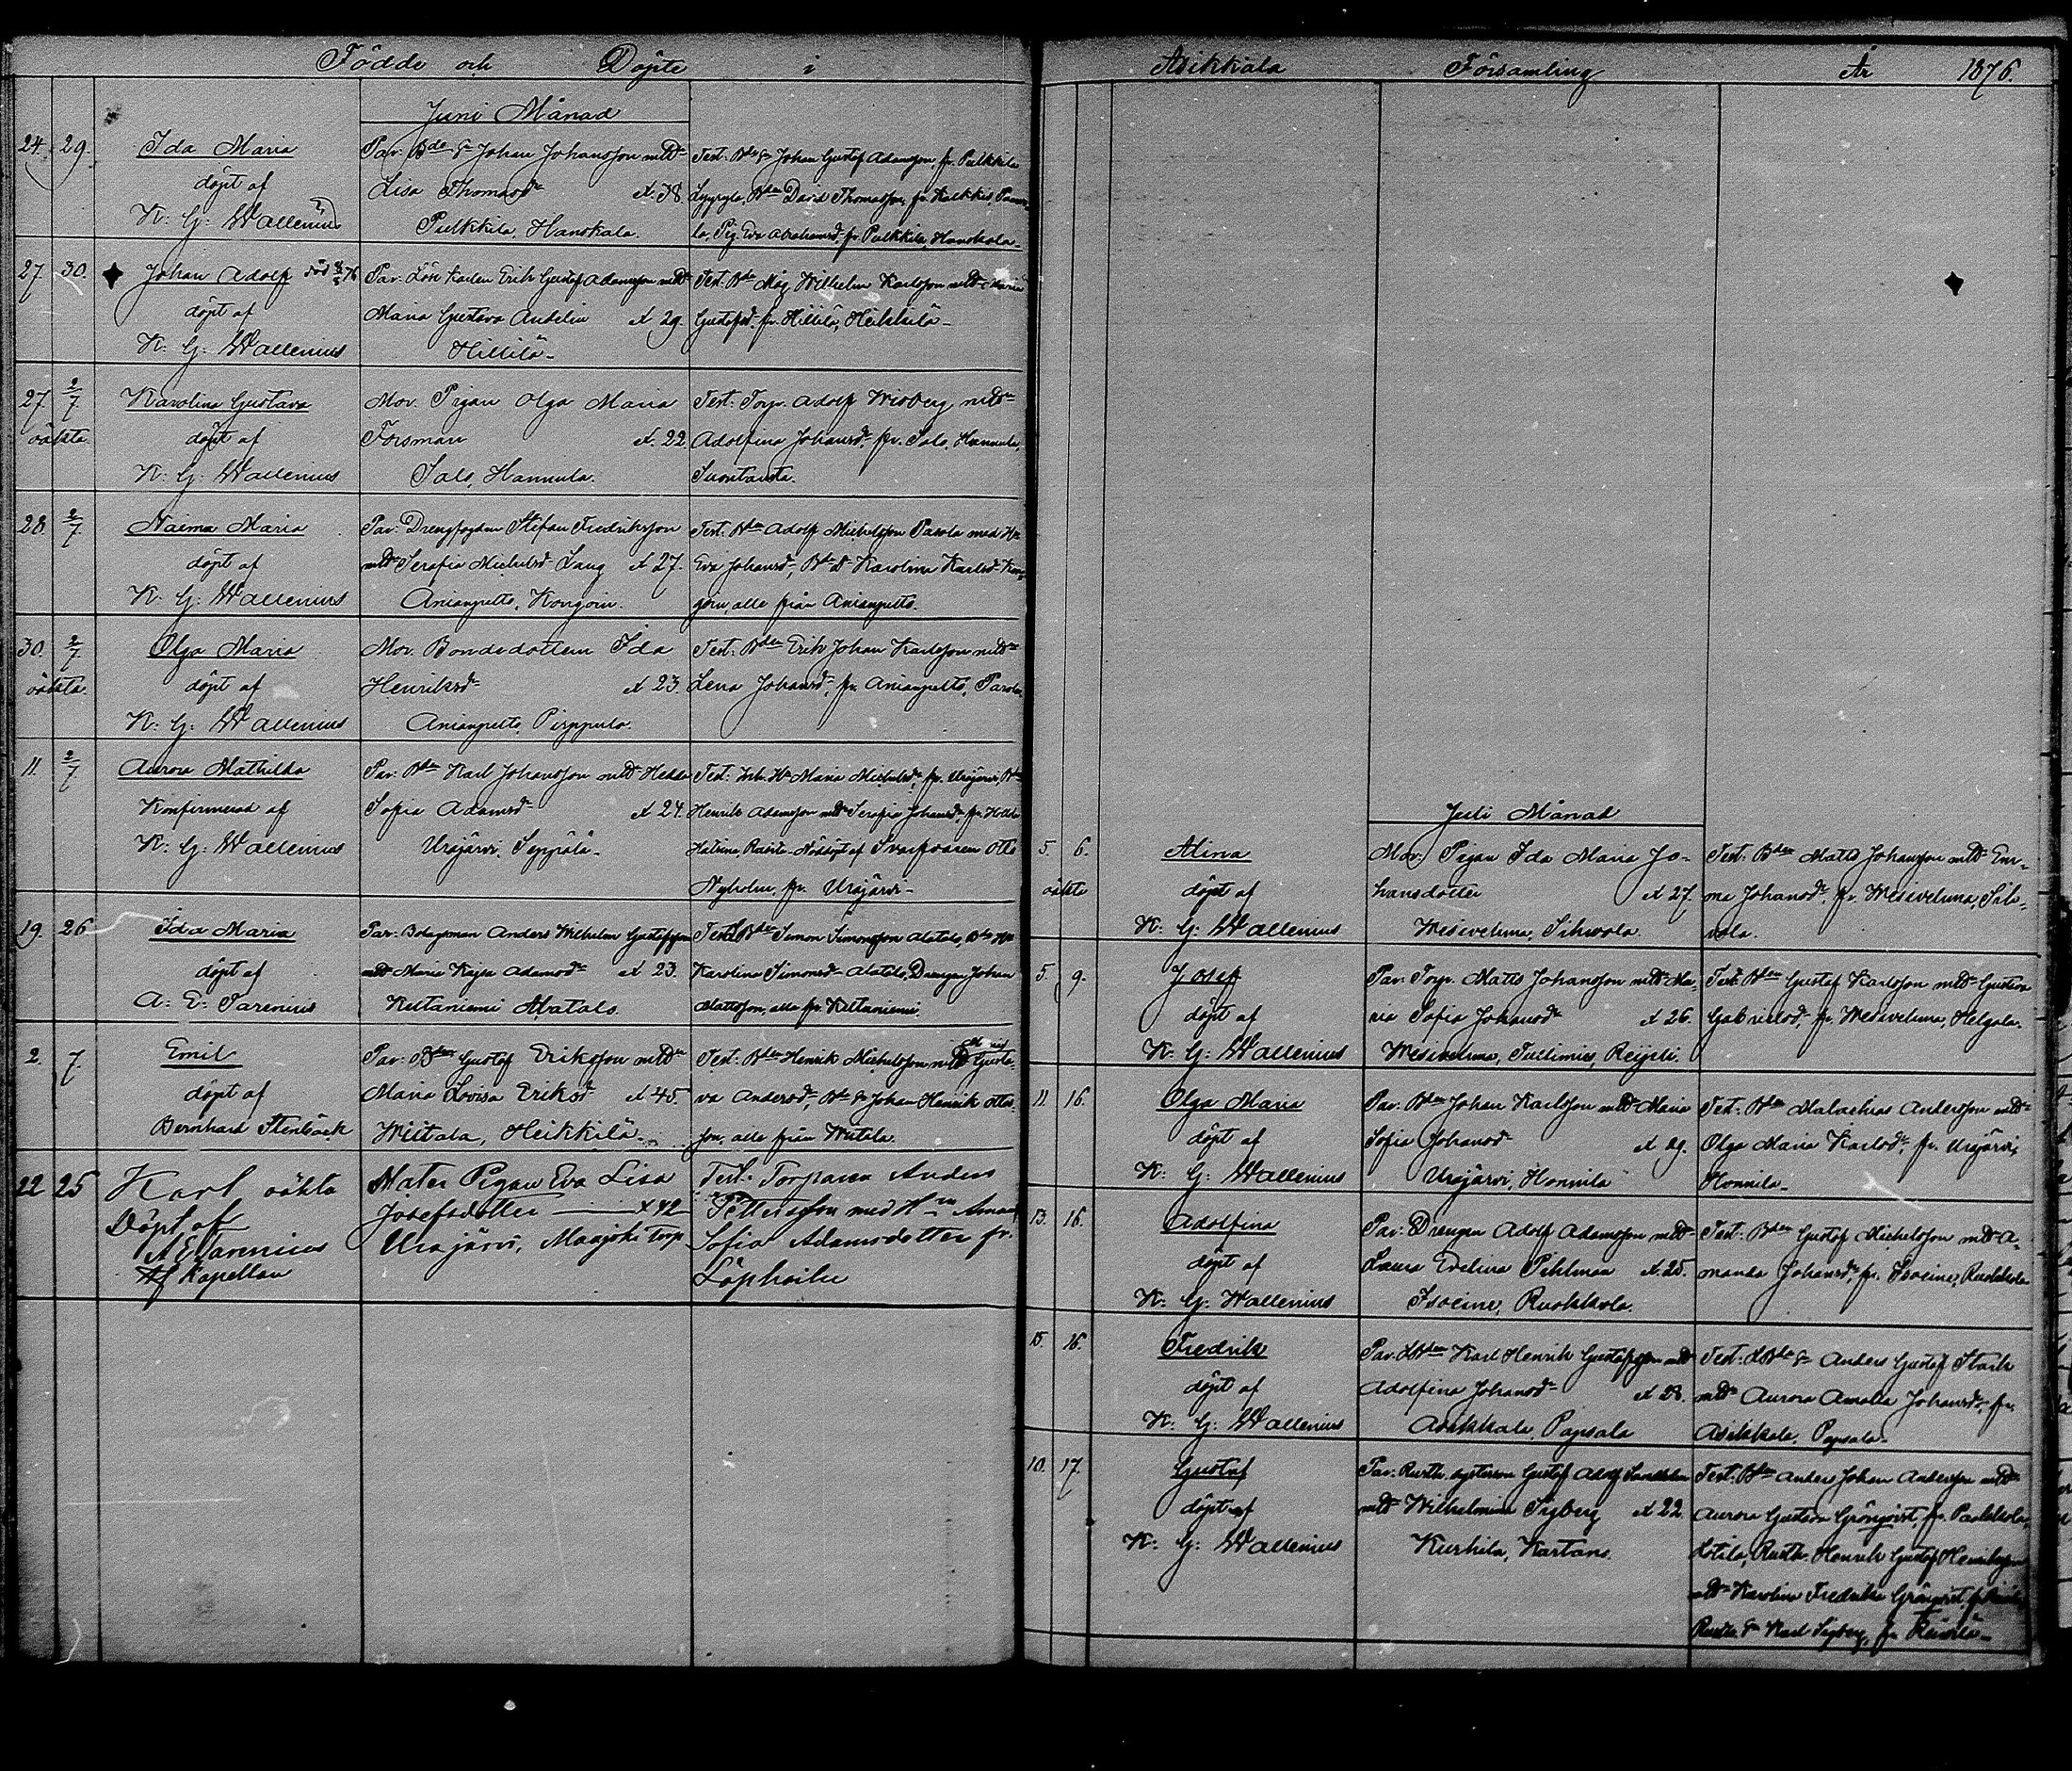 Födde och Döpte i Asikkala Församling År 1876.
Juni Månad
24. 29. Ida Maria
döpt af
K: G: Wallenius
Par: Bde Sn Johan Johansson m d n
Lisa Thomasdr Å. 38.
Pulkkila, Hanskala.
Test: Bde Sn Johan Gustaf Adamsson, fr. Pulkkila
Bden David Thomasson, fr. Kalkkis,
la, Pig. Eva Abrahamsdr fr Pulkkila, Hanskala
27. 30. Johan Adolf
döpt af
K: G: Wallenius
Par: Lösk Karlen Erik Gustaf Adamsson
Maria Gustava Andelin Å 29.
Hillilä
Test: Bde Måg Wilhelm Karlsson m Maria
Gustafsd. fr. Hillilä, Heikkilä
27. 2/7. Karolina Gustava
oäkta. döpt af
K: G: Wallenius
Mor. Pigan Olga Maria
Forsman Å. 22.
Salo, Hannula.
Test: Torp. Adolf Wisberg
Adolfina Johansdr, fr. Salo, Hannula,
28. 2/7. Naima Maria
döpt af
K: G: Wallenius
Par: Drengfogden Stefan Fredriksson
Serafia Michelsd Lang Å 27.
Anianpelto, Kongoin.
Test: Bden Adolf Michelsson Parola med H
Eva Johansdr, Karolina Karlsdr Kon-
goin, alla från Anianpelto.
30. 2/7. Olga Maria
oäkta. döpt af
K: G: Wallenius
Mor. Bondedottern Ida
Henriksdr Å 23.
Anianpelto, Pirppula.
Test: Bden Erik Johan Karlsson
Lena Johansdr, fr Anianpelto, Parola.
11. 2/7 Aurora Mathilda
Konfirmerad af
K: G: Wallenius
Par: Bden Karl Johansson Hedda
Sofia Adamsdr Å 24.
Urajärvi, Seppälä
Test: Inh. Maria Michelsdr, fr. Urajärvi,
Henrik Adamsson Serafia Johansdr, fr. Hollola
Nöddöpt af Otto
Nyholm, fr. Urajärvi
19. 26 Ida Maria
döpt af
A: E: Parenius
Par: Bolagsman Anders Wilhelm Gustafsson
Maria Kajsa Adamsdr Å 23.
Keltaniemi Alatalo.
Test: Bden Simon Simonsson Alatalo,
Karolina Simonsdr Alatalo, Drengen Johan
Mattsson, alla fr. Keltaniemi.
2. 7. Emil
döpt af
Bernhard Stenbäck
Par: Bden Gustaf Eriksson
Maria Lovisa Eriksd Å 45.
Wiitala, Heikkilä
Test: Bden Henrik Michelsson Gusta-
va Andersdr, Johan Henrik Otto-
son, alla från Wiitala.
22 25 Karl oäkta
Döpt af
A E Parenius
Kapellan
Mater Pigan Eva Lisa
Josefsdotter Å 42
Urajärvi, Maajoki Torp
Test: Torparen Anders
Pettersson med H
Sofia Adamsdotter fr.
Juli Månad
5. 6. Alina
oäkta döpt af
K: G: Wallenius
Mor: Pigan Ida Maria Jo-
hansdotter Å 27.
Wesivehma, Sihvola
Test: Bden Matts Johansson Em-
ma Johansdr, fr. Wesivehma, Sih-
vola.
5. 9. Josef
döpt af
K: G: Wallenius
Par: Torp. Matts Johansson Ma-
ria Sofia Johansdr Å 26.
Wesivehma, Tuilimies, Reijsli.
Test: Bden Gustaf Karlsson Gustava
Gabrielsd, fr. Wesivehma, Helgala.
11. 16. Olga Maria
döpt af
K: G: Wallenius
Par: Bden Johan Karlsson Maria
Sofia Johansdr Å 29.
Urajärvi, Honnila
Test: Bden Malachias Andersson
Olga Maria Karlsdr, fr. Urajärvi,
Honnila
13. 16. Adolfina
döpt af
K: G: Wallenius
Par: Drengen Adolf Adamsson
Laura Evelina Pihlman Å 25.
Isoeine, Ruokkola.
Test: Bden Gustaf Michelsson A-
manda Johansdr, fr. Isoeine, Ruokkola
15. 16. Fredrik
döpt af
K: G: Wallenius
Par: Karl Henrik Gustafsson
Adolfina Johansdr Å 28.
Asikkala, Papsala
Test: Anders Gustaf Stark
Aurora Amalia Johansdr, fr.
Asikkala, Papsala
10. 17. Gustaf
döpt af
K: G: Wallenius
Par: Gustaf Adolf
Wilhelmina Sigberg Å 22.
Kurhila, Kartano.
Test: Bden Anders Johan Andersson
Aurora Gustava Grönqvist, fr.
Henrik Gustaf
Karolina Fredrika Grönqvist
Karl Sigberg, fr